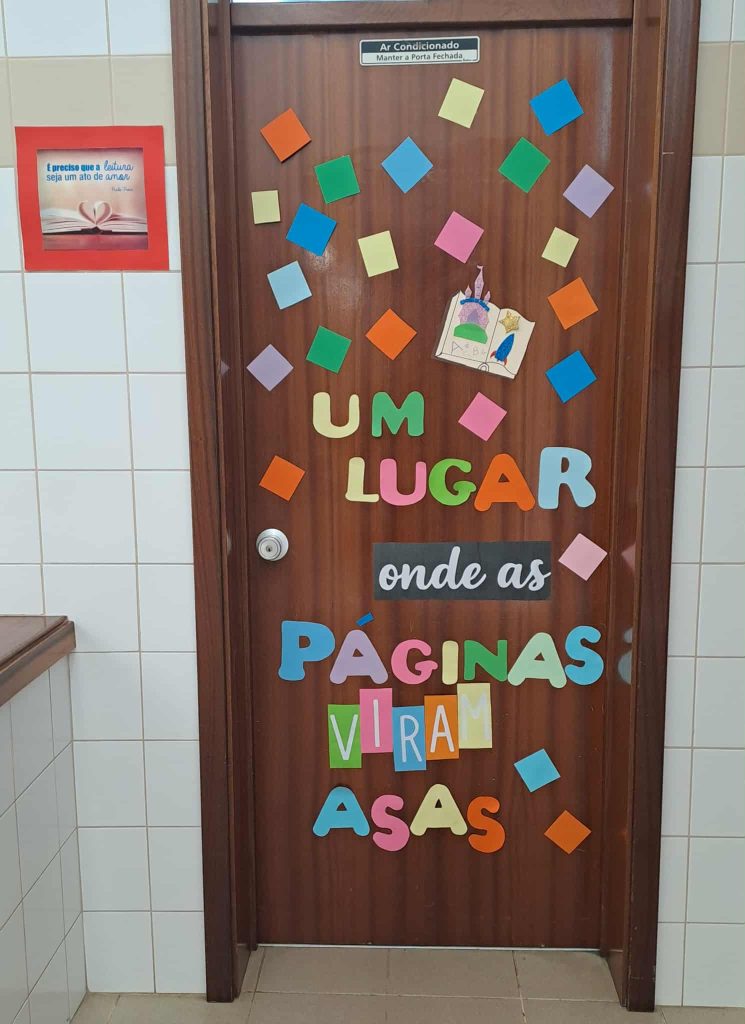 Ar Condicionado
Manter a Porta Fechada
É preciso que a leitura
seja um ato de amor
UM
LUGAR
onde as
PÁGINAS
VIRAM
ASAS